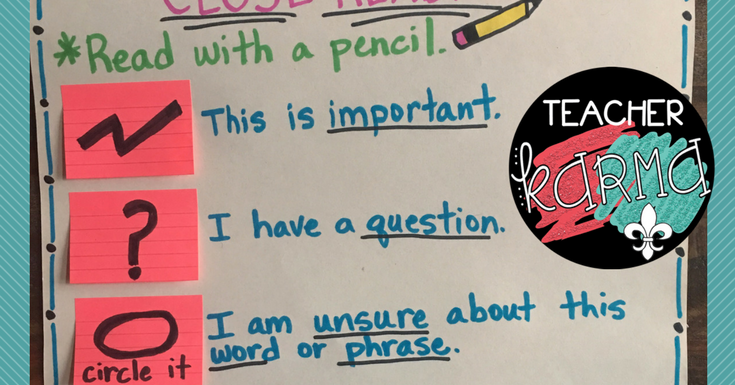 CLOSE READ
*Read with a pencil.
This is important.
?
I have a question.
I am unsure about this
word or phrase.
circle it
TEACHER
KARMA